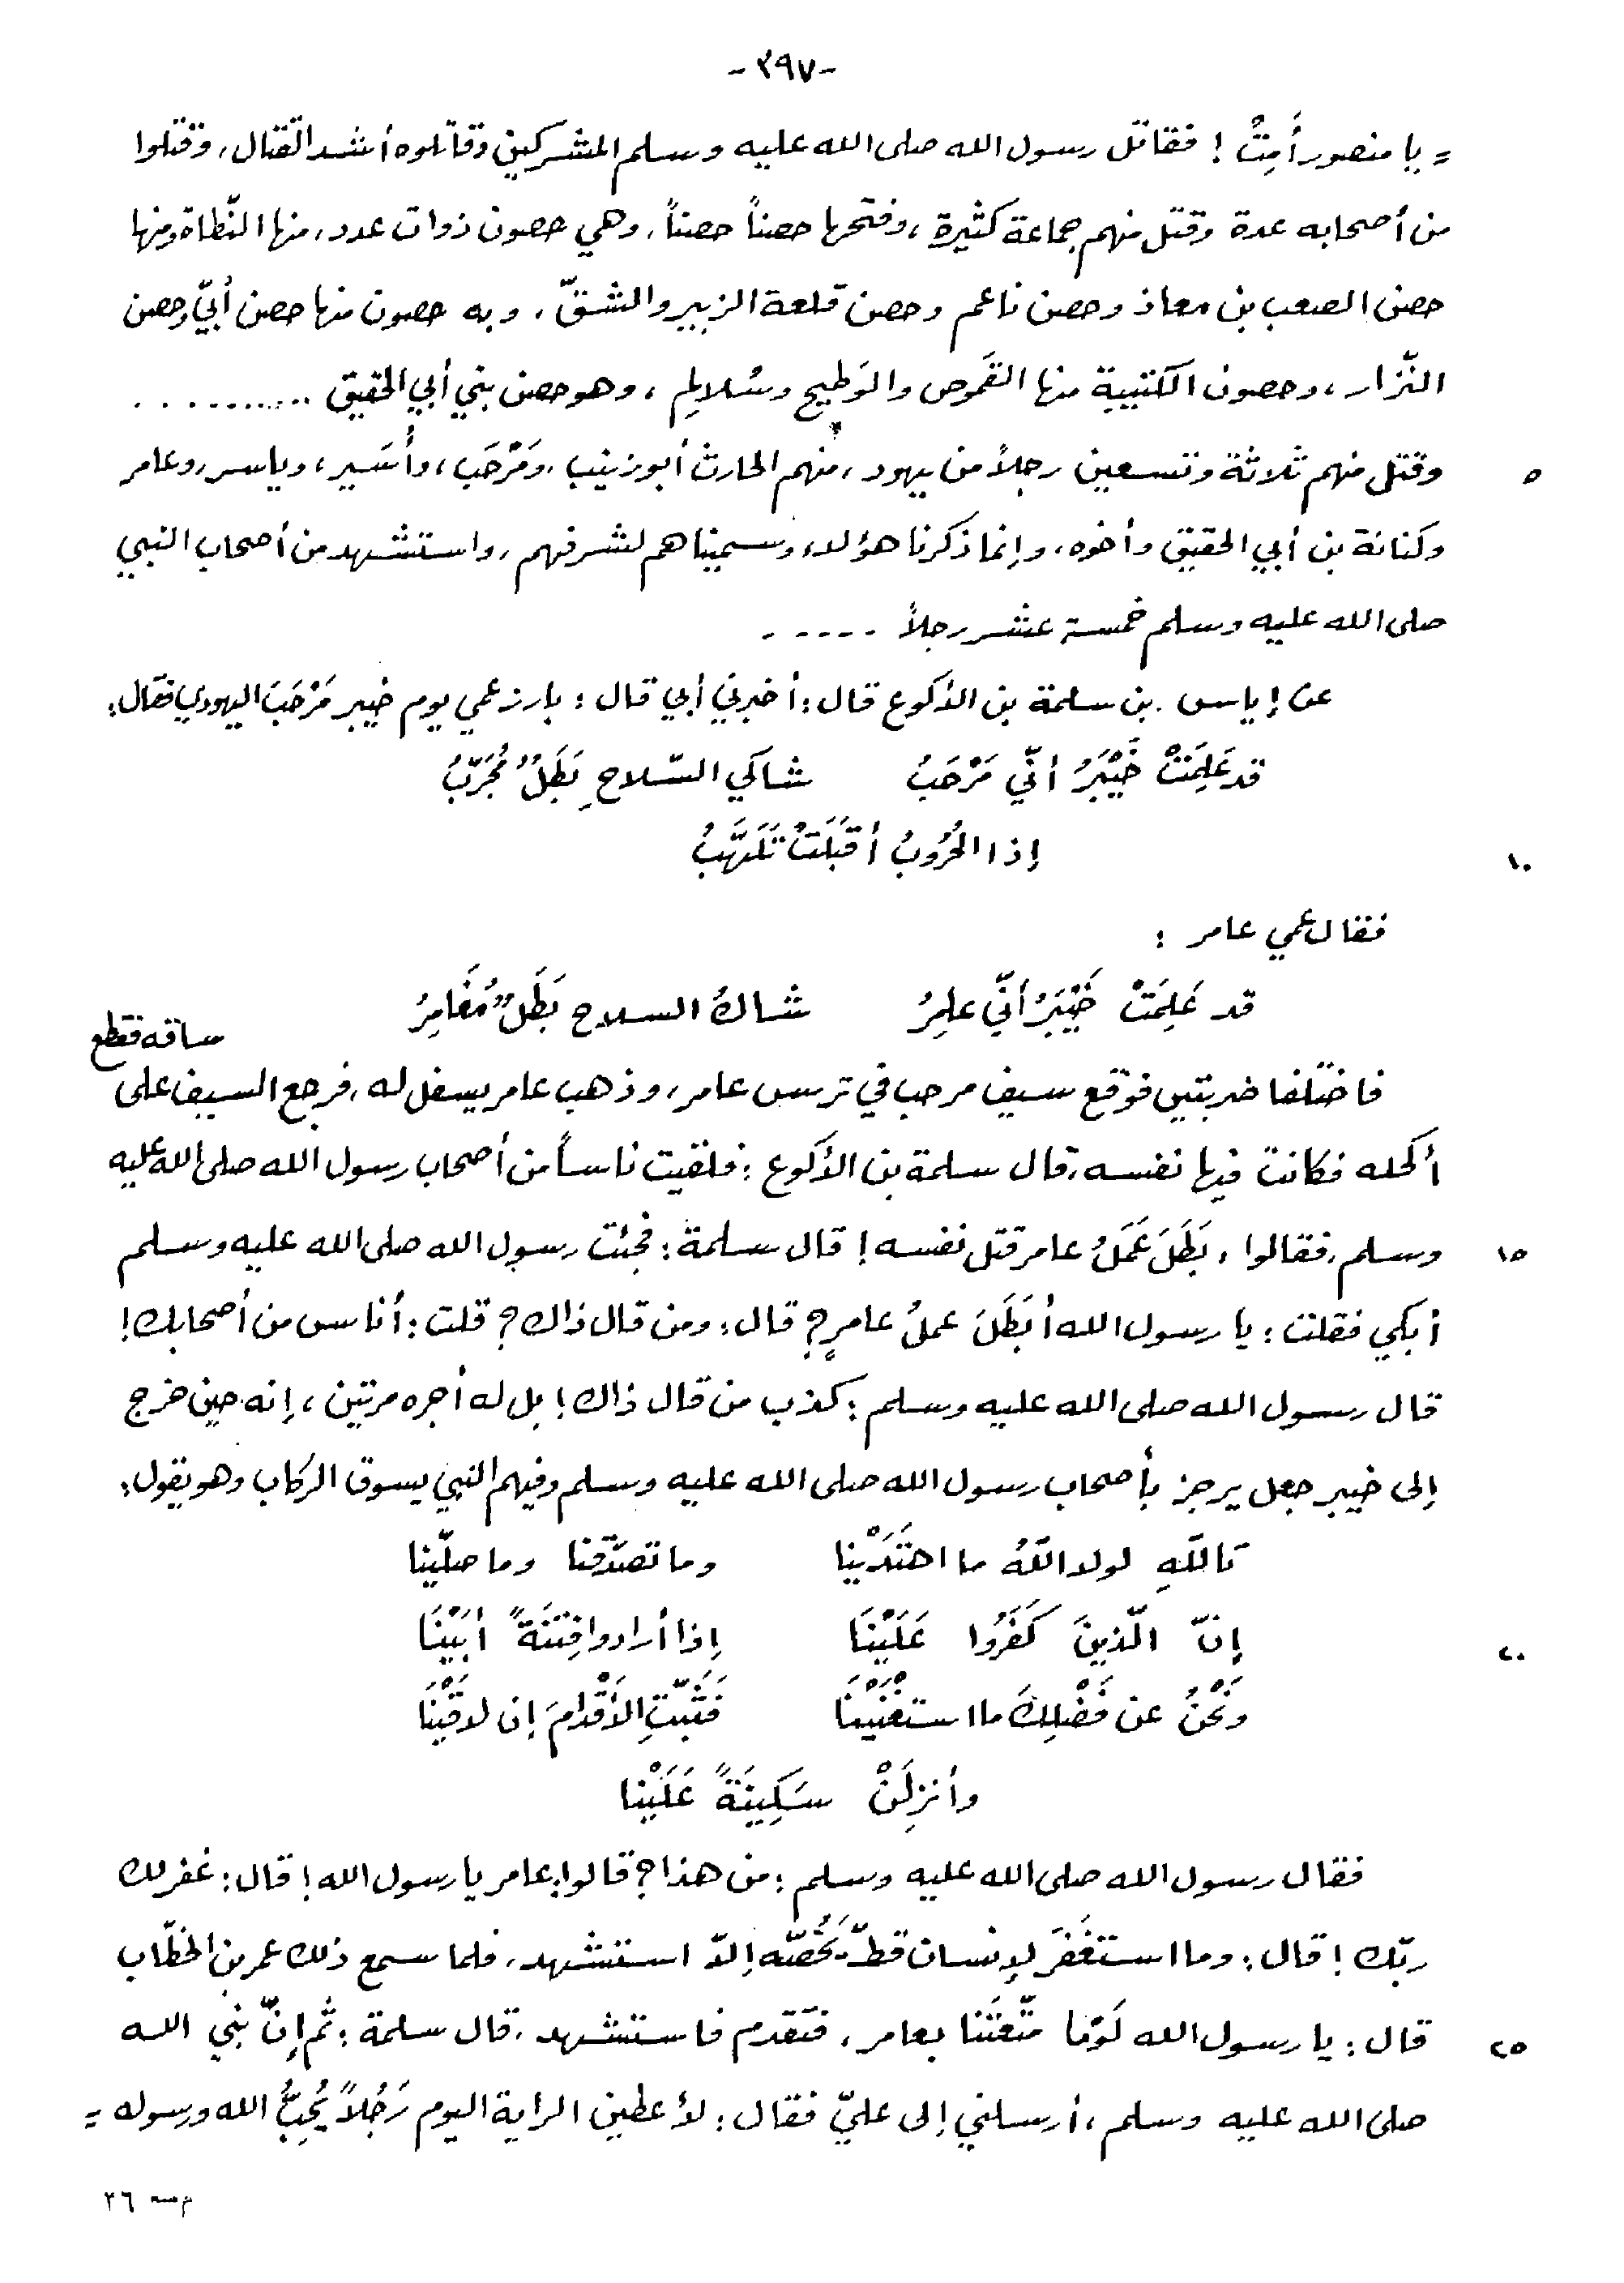 -٣٩٧-
= يا منصور أَمِتْ! فقاتل رسول الله صلى الله عليه وسلم المشركين وقاتلوه أشد القتال، وقتلوا
من أصحابه عدة وقتل منهم جماعة كثيرة، وفتحها حصناً حصناً، وهي حصون ذوات عدد، منها النّطاة ومنها
حصن الصعب بن معاذ وحصن ناعم وحصن قلعة الزبير والشقّ، وبه حصون منها حصن أبيّ وحصن
النّزار، وحصون الكتيبة منها القَموص والوَطيح وسُلالِم، وهو حصن بني أبي الحقيق ..........
٥ وقتل منهم ثلاثة وتسعين رجلاً من يهود، منهم الحارث أبو زينب* ومَرْحَب، وأُسَير، وياسر، وعامر
وكنانة بن أبي الحقيق وأخوه، وإنما ذكرنا هؤلاء وسميناهم لشرفهم، واستشهد من أصحاب النبي
صلى الله عليه وسلم خمسة عشر رجلاً -----
عن إياس بن سلمة بن الأكوع قال: أخبرني أبي قال: بارز عمي يوم خيبر مَرْحَبَ اليهودي فقال:
قد عَلِمَتْ خَيْبَرُ أنّي مَرْحَبُ شاكي السّلاحِ بَطَلٌ مُجَرَّبُ
١٠ إذا الحُرُوبُ أقبَلَتْ تَلَهَّبُ
فقال عمي عامر:
قد عَلِمَتْ خَيْبَرُ أنّي عامِرُ شاكُ السلاح بَطَلٌ مُغَامِرُ
فاختلفا ضربتين فوقع سيف مرحب في ترس عامر، وذهب عامر يسفل له، فرجع السيف على ساقه فقطع
أكحله فكانت فيها نفسه، قال سلمة بن الأكوع: فلقيت ناساً من أصحاب رسول الله صلى الله عليه
١٥ وسلم، فقالوا، بَطَلَ عَمَلُ عامر قتل نفسه! قال سلمة: فجئت رسول الله صلى الله عليه وسلم
أبكي فقلت: يا رسول الله أبَطَلَ عملُ عامرٍ؟ قال: ومن قال ذاك؟ قلت: أناس من أصحابك!
قال رسول الله صلى الله عليه وسلم: كذب من قال ذاك! بل له أجره مرتين، إنه حين خرج
إلى خيبر جعل يرجز بأصحاب رسول الله صلى الله عليه وسلم وفيهم النبي يسوق الركاب وهو يقول:
تاللّهِ لولا اللّهُ ما اهتَدَيْنا وما تصدّقنا وما صلّينا
٢٠ إنّ الّذينَ كَفَرُوا عَلَيْنَا إذا أرادوا فِتنَةً أبَيْنَا
ونَحْنُ عن فَضْلِكَ ما استَغْنَيْنَا فَثَبّتِ الأَقْدامَ إن لاقَيْنَا
وأنزِلَنْ سَكِينَةً عَلَيْنا
فقال رسول الله صلى الله عليه وسلم: من هذا؟ قالوا: عامر يا رسول الله! قال: غفر لك
ربّك! قال: وما استَغفَرَ لإنسان قطّ يَخُصّه إلاّ استشهد، فلما سمع ذلك عمر بن الخطّاب
٢٥ قال: يا رسول الله لَوْما متّعتَنا بعامر، فتقدم فاستشهد، قال سلمة: ثم إنّ نبي الله
صلى الله عليه وسلم، أرسلني إلى عليّ فقال: لأعطين الراية اليوم رَجُلاً يُحِبُّ الله ورسوله =
٢٦